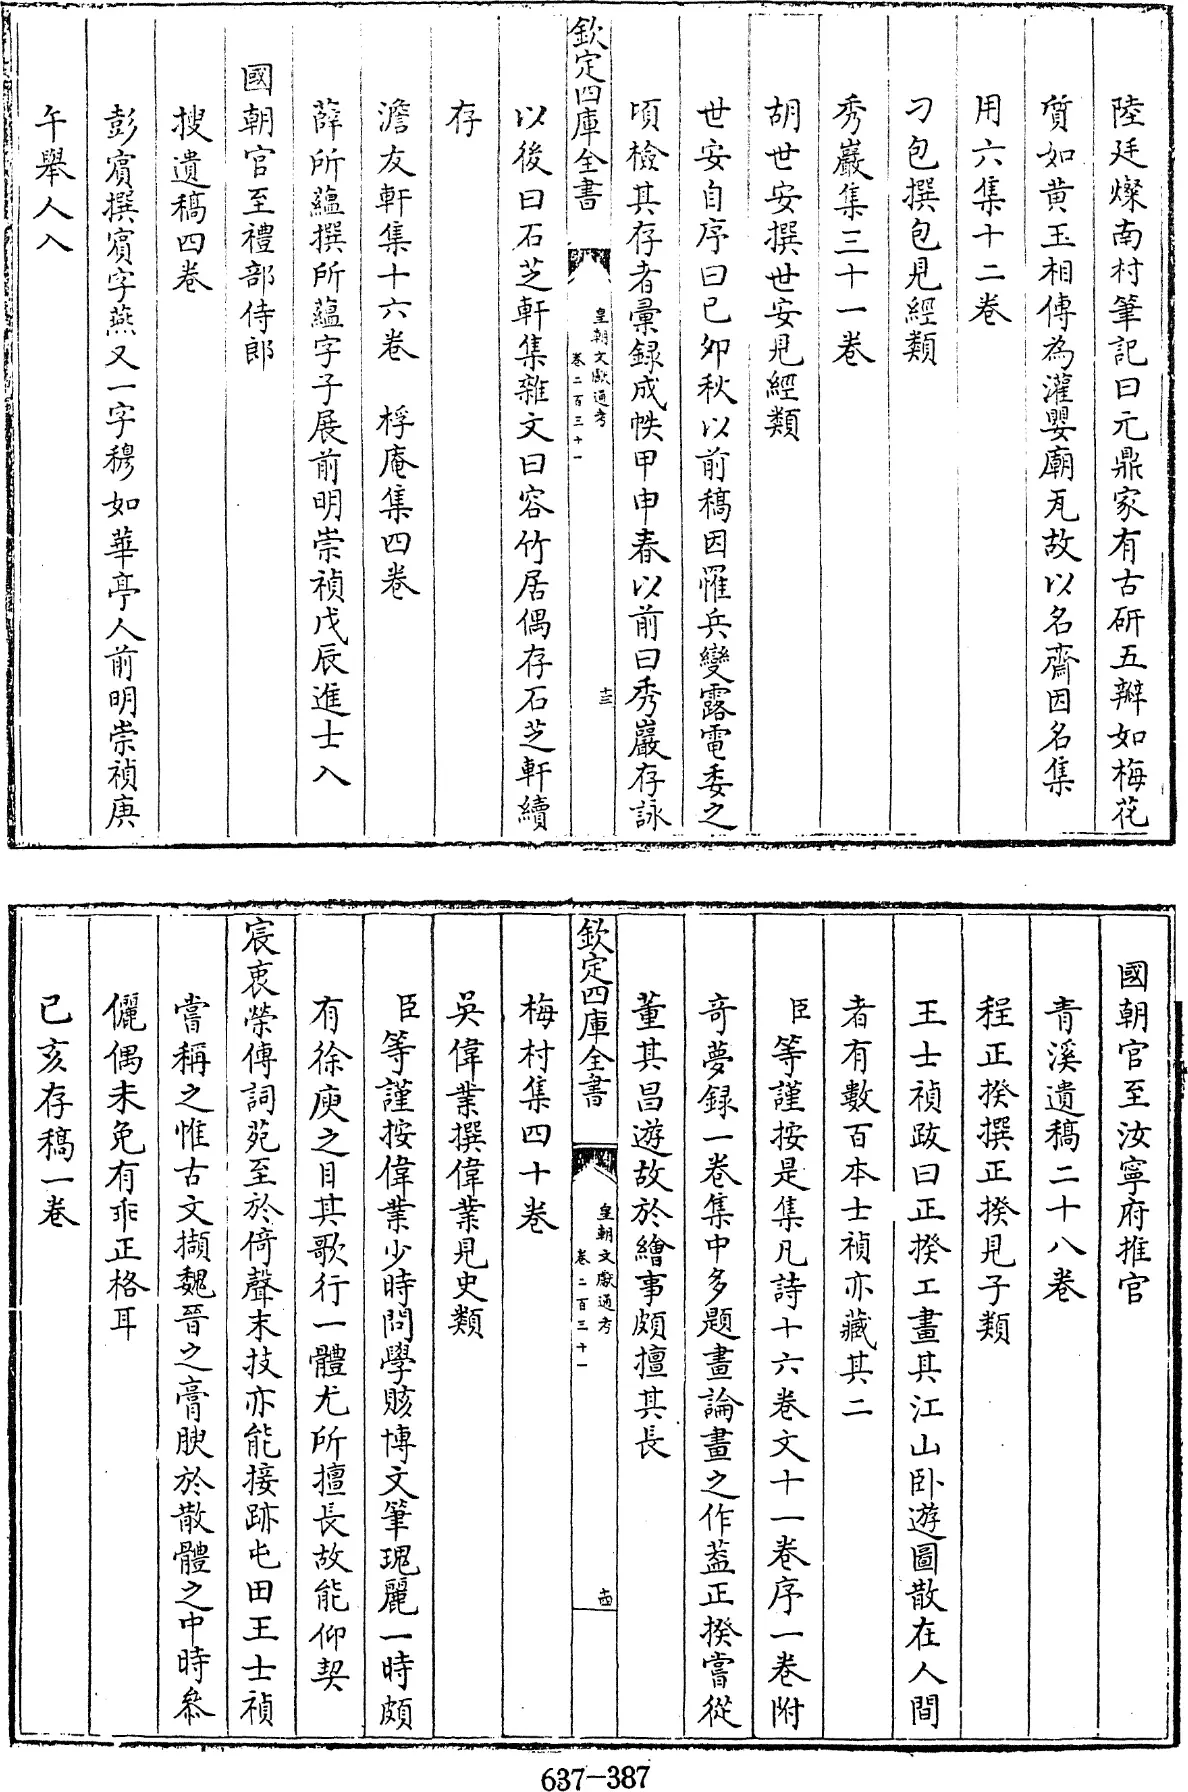 陸廷燦南村筆記曰元鼎家有古研五瓣如梅花
質如黄玉相傳為灌嬰廟瓦故以名齋因名集
用六集十二卷
刁包撰包見經類
秀巖集三十一卷
胡世安撰世安見經類
世安自序曰已卯秋以前稿因罹兵變露電委之
頃檢其存者彚録成帙甲申春以前曰秀巖存詠
欽定四庫全書
皇朝文獻通考
卷二百三十一
十三
以後曰石芝軒集雜文曰容竹居偶存石芝軒續
存
澹友軒集十六卷 桴庵集四卷
薛所蘊撰所蘊字子展前明崇禎戊辰進士入
國朝官至禮部侍郎
搜遺稿四卷
彭賓撰賓字燕又一字穆如華亭人前明崇禎庚
午舉人入
國朝官至汝寧府推官
青溪遺稿二十八卷
程正揆撰正揆見子類
王士禎跋曰正揆工畫其江山卧遊圖散在人間
者有數百本士禎亦藏其二
臣等謹按是集凡詩十六卷文十一卷序一卷附
竒夢録一卷集中多題畫論畫之作葢正揆嘗從
董其昌遊故於繪事頗擅其長
欽定四庫全書
皇朝文獻通考
卷二百三十一
十四
梅村集四十卷
吳偉業撰偉業見史類
臣等謹按偉業少時問學賅博文筆瑰麗一時頗
有徐庾之目其歌行一體尤所擅長故能仰契
宸衷榮傳詞苑至於倚聲末技亦能接跡屯田王士禎
嘗稱之惟古文擷魏晉之膏腴於散體之中時參
儷偶未免有乖正格耳
已亥存稿一卷
637-387